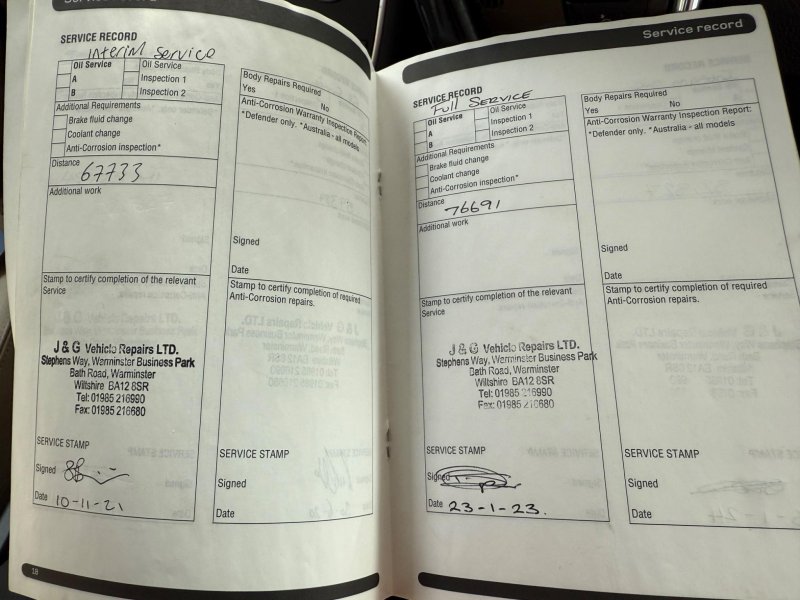 SERVICE RECORD
Interim Service
Oil Service
Oil Service
A
Inspection 1
B
Inspection 2
Additional Requirements
Brake fluid change
Coolant change
Anti-Corrosion inspection*
Distance
67733
Additional work
Stamp to certify completion of the relevant
Service
J & G Vehicle Repairs LTD.
Stephens Way, Warminster Business Park
Bath Road, Warminster
Wiltshire BA12 8SR
Tel: 01985 216990
Fax: 01985 216680
SERVICE STAMP
Signed
Date 10-11-21
18
Body Repairs Required
Yes No
Anti-Corrosion Warranty Inspection Report:
*Defender only. *Australia - all models
Signed
Date
Stamp to certify completion of required
Anti-Corrosion repairs.
SERVICE STAMP
Signed
Date
Service record
SERVICE RECORD
Full Service
Oil Service
Oil Service
A
Inspection 1
B
Inspection 2
Additional Requirements
Brake fluid change
Coolant change
Anti-Corrosion inspection*
Distance
76691
Additional work
Stamp to certify completion of the relevant
Service
J & G Vehicle Repairs LTD.
Stephens Way, Warminster Business Park
Bath Road, Warminster
Wiltshire BA12 8SR
Tel: 01985 216990
Fax: 01985 216680
SERVICE STAMP
Signed
Date 23-1-23.
Body Repairs Required
Yes No
Anti-Corrosion Warranty Inspection Report:
*Defender only. *Australia - all models
Signed
Date
Stamp to certify completion of required
Anti-Corrosion repairs.
SERVICE STAMP
Signed
Date